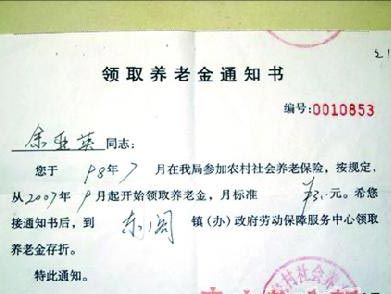 领取养老金通知书
编号:0010853
余亚英同志:
您于 98年7月在我局参加农村社会养老保险,按规定,
从2007年9月起开始领取养老金,月标准 元。希您
接通知书后,到 东阁 镇(办)政府劳动保障服务中心领取
养老金存折。
特此通知。
村社会养